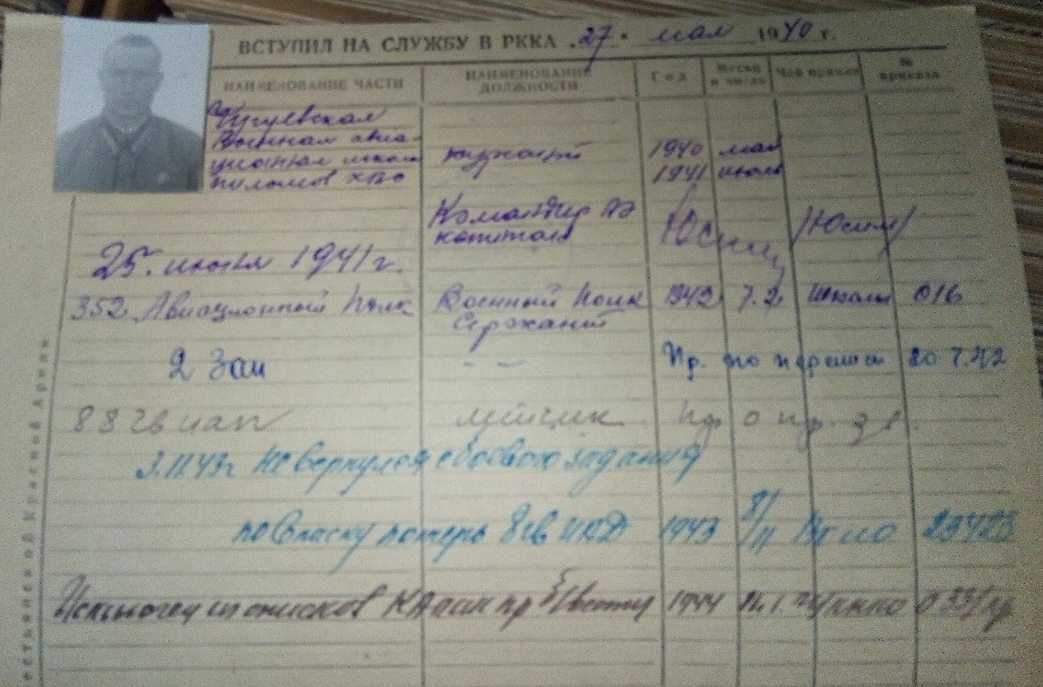 ВСТУПИЛ НА СЛУЖБУ В РККА „27“ мая 1940 г.
НАИМЕНОВАНИЕ ЧАСТИ НАИМЕНОВАНИЕ ДОЛЖНОСТИ Год Месяц и число Чей приказ № приказа
Чугуевская
Военная авиа-
ционная школа
пилотов ХВО курсант 1940 мая
1941 июнь
Командир АЭ
капитан Юсин /Юсин/
25. июня 1941 г.
352 Авиационный Полк Военный Пилк 1942 7.2 Школы 016
Сержант
2 Зап — — Пр. по 20.7.42
88 Гв иап летчик пр о
3.11.43г Не вернулся с боевого задания
по списку потерь 8 гв ИАД 1943 8/11 29423
Исключен из списков КА 1944
естьянской Красной Армии